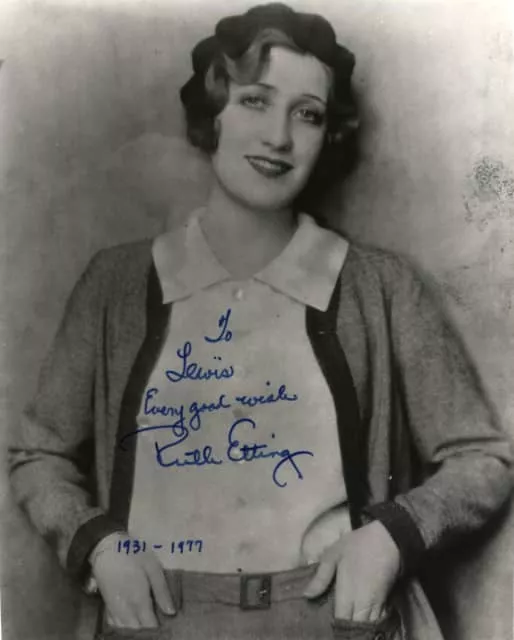 To
Lewis
Every good wish
Ruth Etting
1931 - 1977